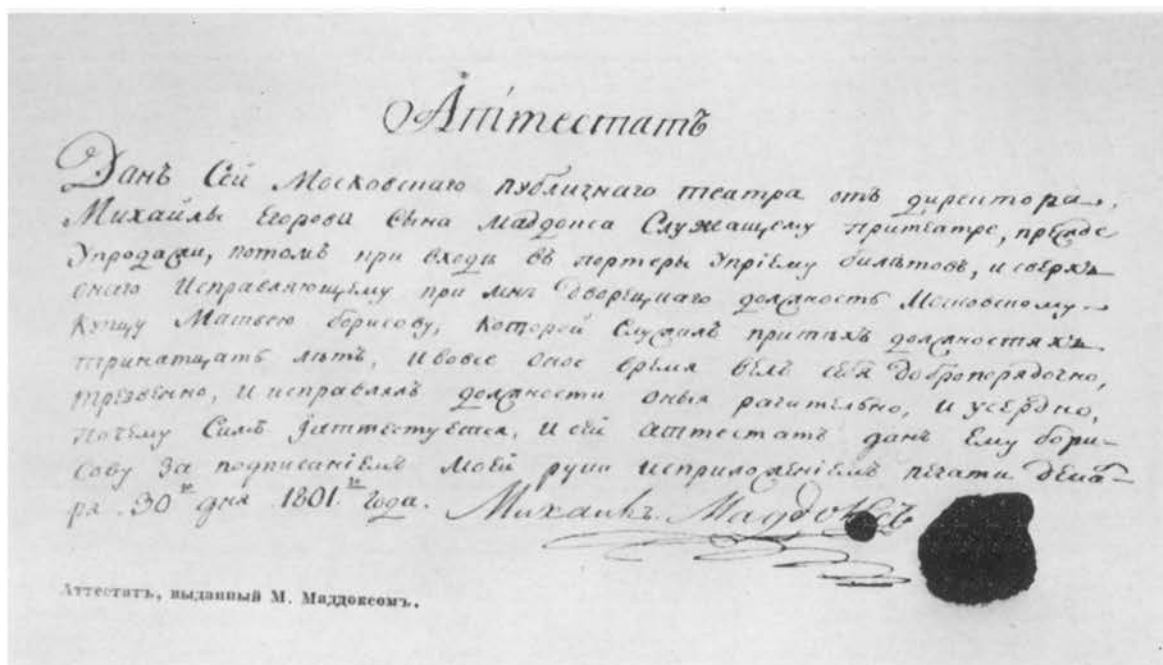 Аттестатъ
Данъ Сей Московскаго публичнаго театра отъ директора
Михайлы Егорова сына Маддокса Служащему притеатре, прежде
Упродажи, потомъ при входѣ въ портеры Упріему билѣтовъ, и сверхъ
онаго Исправляющему при мнѣ дворецкаго должность Московскому
Купцу Матвею борисову, которой Служилъ притѣхъ должностяхъ
тринатцать лѣтъ, ивовсе оное время велъ себя добропорядочно,
трезвенно, и исправлялъ должности оныя рачительно, и усердно,
почему Симъ Iаттестуется, и сей аттестатъ данъ Ему бори-
сову За подписаніемъ моей руки исприложеніемъ печати дека-
ря 30го дня 1801го Года. Михаилъ Маддоксъ
Аттестатъ, выданный М. Маддоксомъ.